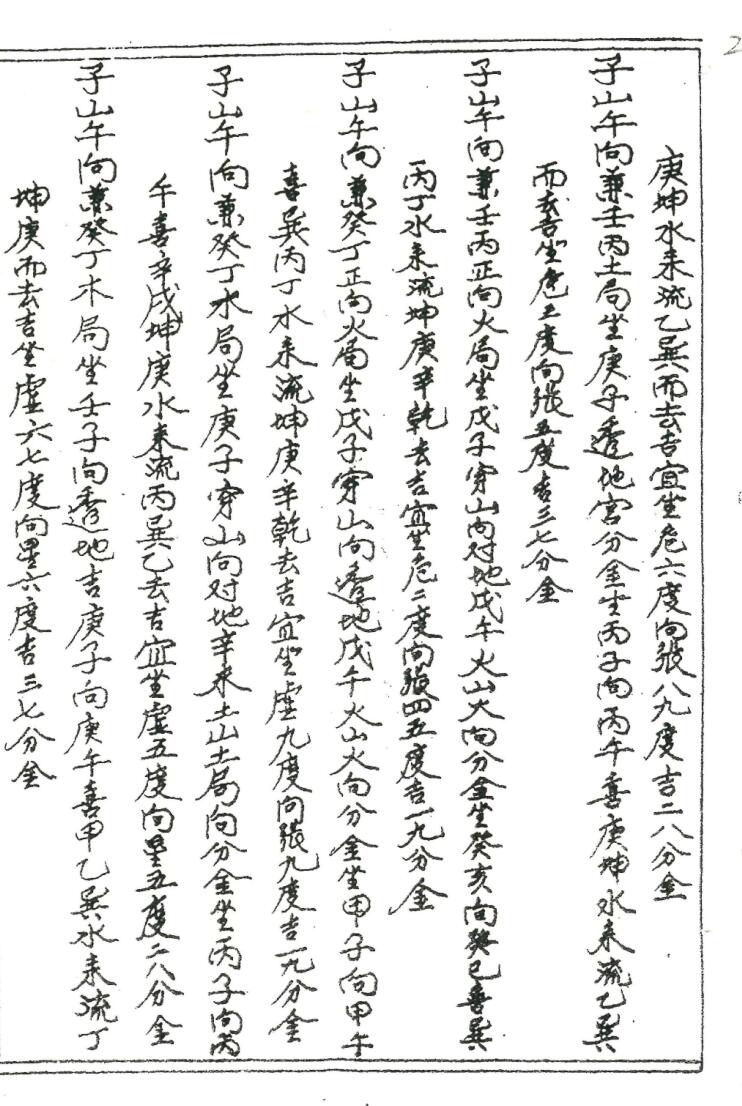 2
庚坤水来流乙巽而去吉宜坐危六度向張八九度吉二八分金
子山午向兼壬丙土局坐庚子透地宫分金坐丙子向丙午喜庚坤水来流乙巽
而去吉坐危五度向張五度吉三七分金
子山午向兼壬丙正向火局坐戊子穿山向对地戊午火山火向分金坐癸亥向癸巳喜巽
丙丁水来流坤庚辛乾去吉宜坐危二度向張四五度吉一九分金
子山午向兼癸丁正向火局坐戊子穿山向透地戊午火山火向分金坐甲子向甲午
喜巽丙丁水来流坤庚辛乾去吉宜坐虚九度向張九度吉一九分金
子山午向兼癸丁水局坐庚子穿山向对地辛未土山土局向分金坐丙子向丙
午喜辛戌坤庚水来流丙巽乙去吉宜坐虚五度向星五度二八分金
子山午向兼癸丁木局坐壬子向透地吉庚子向庚午喜甲乙巽水来流丁
坤庚而去吉坐虚六七度向星六度吉三七分金